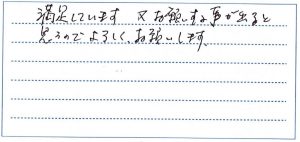 満足しています 又お願いする事が出ると
思うのでよろしくお願いします。